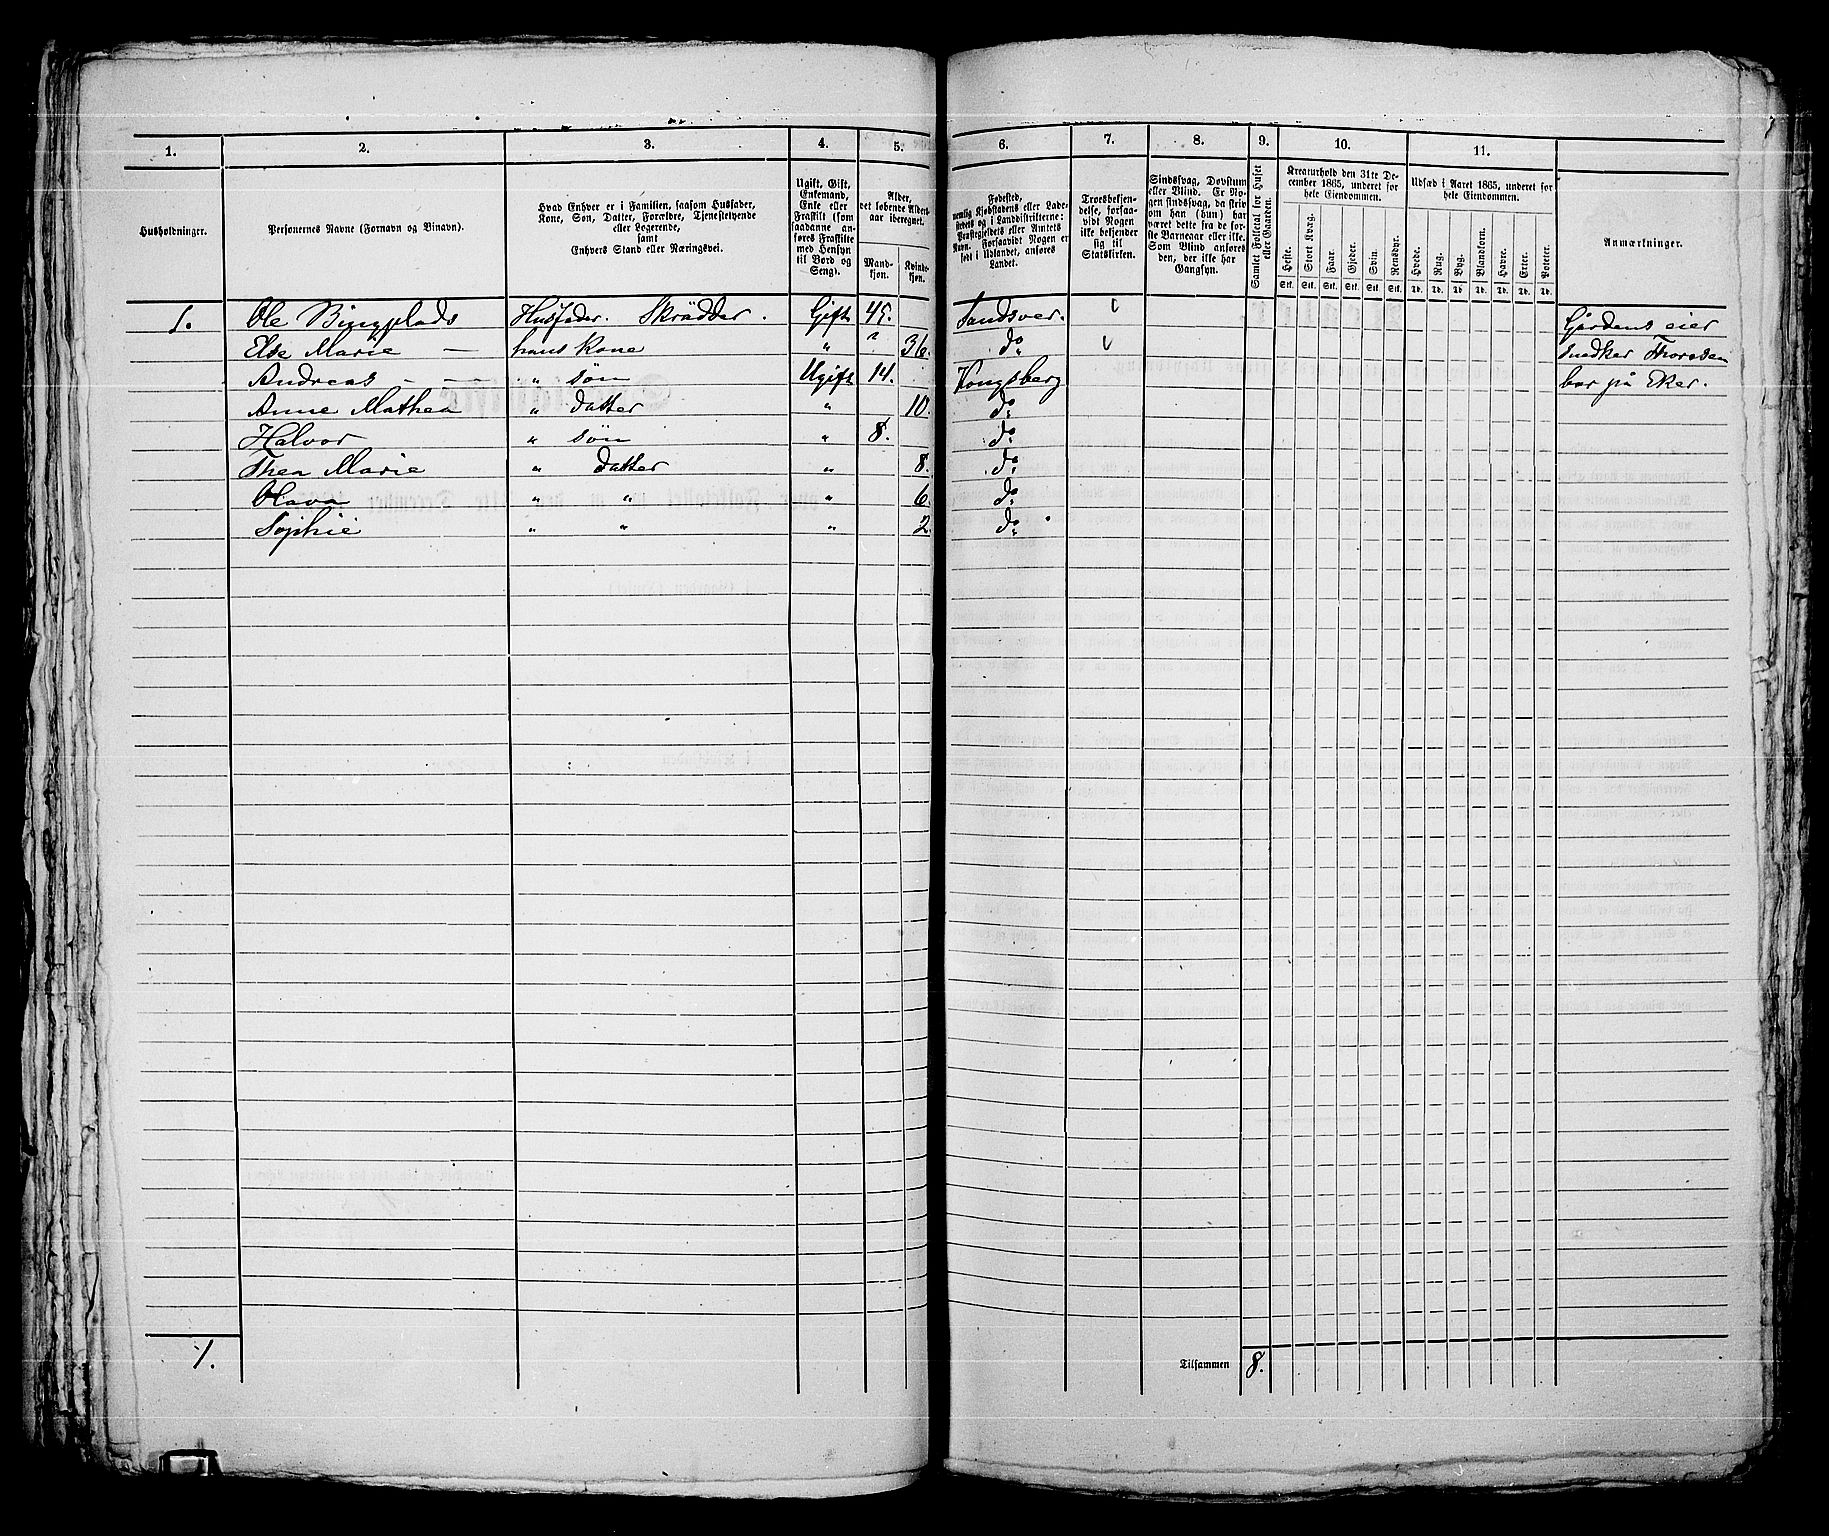 1. 2. 3. 4. 5. 6. 7. 8. 9. 10. 11.
Husholdninger.
Personernes Navne (Fornavn og Tilnavn).
Hvad Enhver er i Familien, saasom Husfader,
Kone, Søn, Datter, Forældre, Tjenestetyende
eller Logerende,
samt
Enhvers Stand eller Næringsvei.
Ugift, Gift,
Enkemand,
Enke eller
Fraskilt (som
saadanne an-
føres Fraskilte
med Hensyn
til Bord og
Seng).
Alder,
det løbende Alders-
aar iberegnet.
Mand-
kjøn.
Kvinde-
kjøn.
Fødested,
nemlig Kjøbstadens eller Lade-
stedets og i Landdistrikterne:
Præstegjeldets eller Amtets
Navn. Forsaavidt Nogen er
født i Udlandet, anføres
Landet.
Troesbekjen-
delse, forsaa-
vidt Nogen
ikke bekjender
sig til
Statskirken.
Sindssvag, Døvstum
eller Blind. Er No-
gen sindssvag, da skriv
om han (hun) har
været dette fra de før-
ste Barneaar eller ikke.
Som Blind anføres
den, der ikke har
Gangsyn.
Samlet Folketal for Huset
eller Gaarden.
Kreaturhold den 31te De-
cember 1865, underet for
hele Eiendommen.
Heste. Stort Kvæg. Faar. Gjeder. Svin. Rensdyr.
Stk. Stk. Stk. Stk. Stk. Stk.
Udsæd i Aaret 1865, underet for
hele Eiendommen.
Hvede. Rug. Byg. Blandkorn. Havre. Erter. Poteter.
Td. Td. Td. Td. Td. Td. Td.
Anmærkninger.
1. Ole Bingplads Husfader. Skrædder. Gift 45. Sandsver. Gårdens eier
Else Marie — hans Kone " 36. do snedker Thorsen
Andreas - - " søn Ugift 14. Kongsberg bor på Eker.
Anne Mathea " datter " 10. do
Halvor " søn " 8. do
Thea Marie " datter " 8. do
Olava " " " 6. do
Sophie " " " 2. do
1. Tilsammen 8.